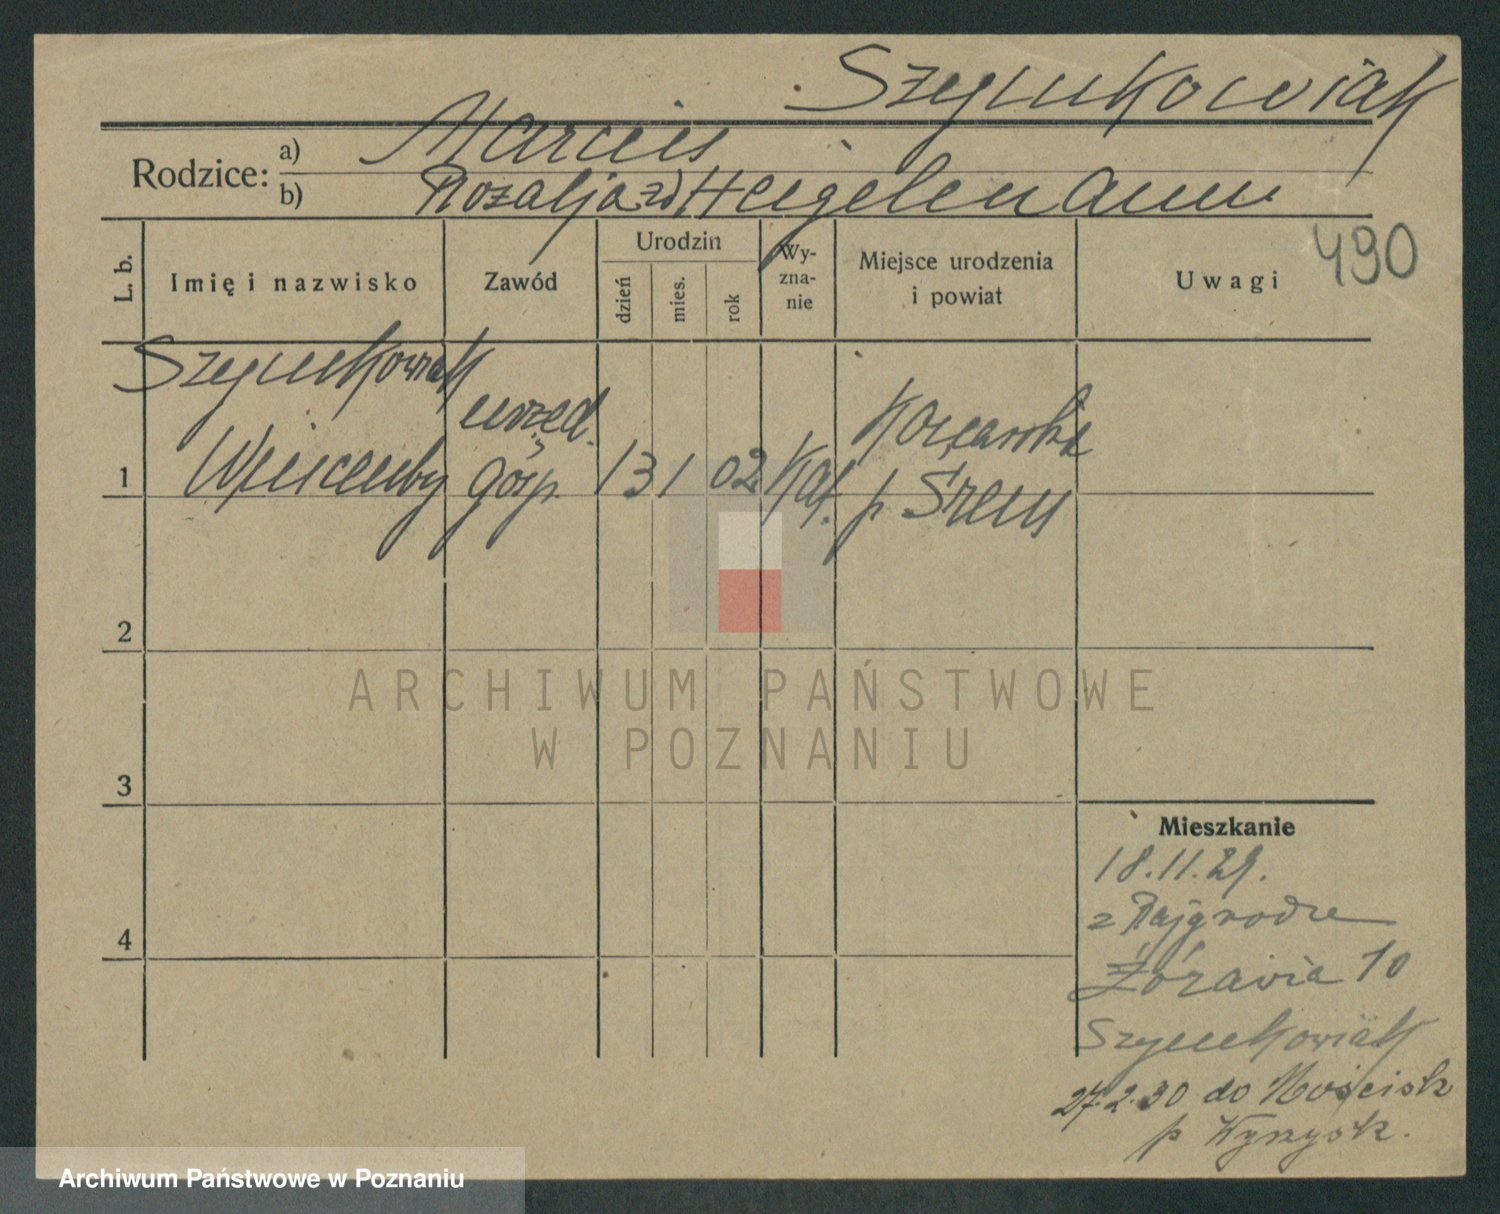 Szymkowiak
Rodzice: a) Marcin
b) Rozalja zd. Heigelmann
490
L. b.
Imię i nazwisko
Zawód
Urodzin
dzień
mies.
rok
Wy-
zna-
nie
Miejsce urodzenia
i powiat
Uwagi
Szymkowiak
urzęd.
1 Wincenty gosp. 13 1 02 Kat.
p Śrem
2
3
4
ARCHIWUM PAŃSTWOWE
W POZNANIU
Mieszkanie
18.11.29.
z Rajgrodze
Żórawia 10
Szymkowiak
27.2.30 do Mościsk
p Wyrzysk.
Archiwum Państwowe w Poznaniu